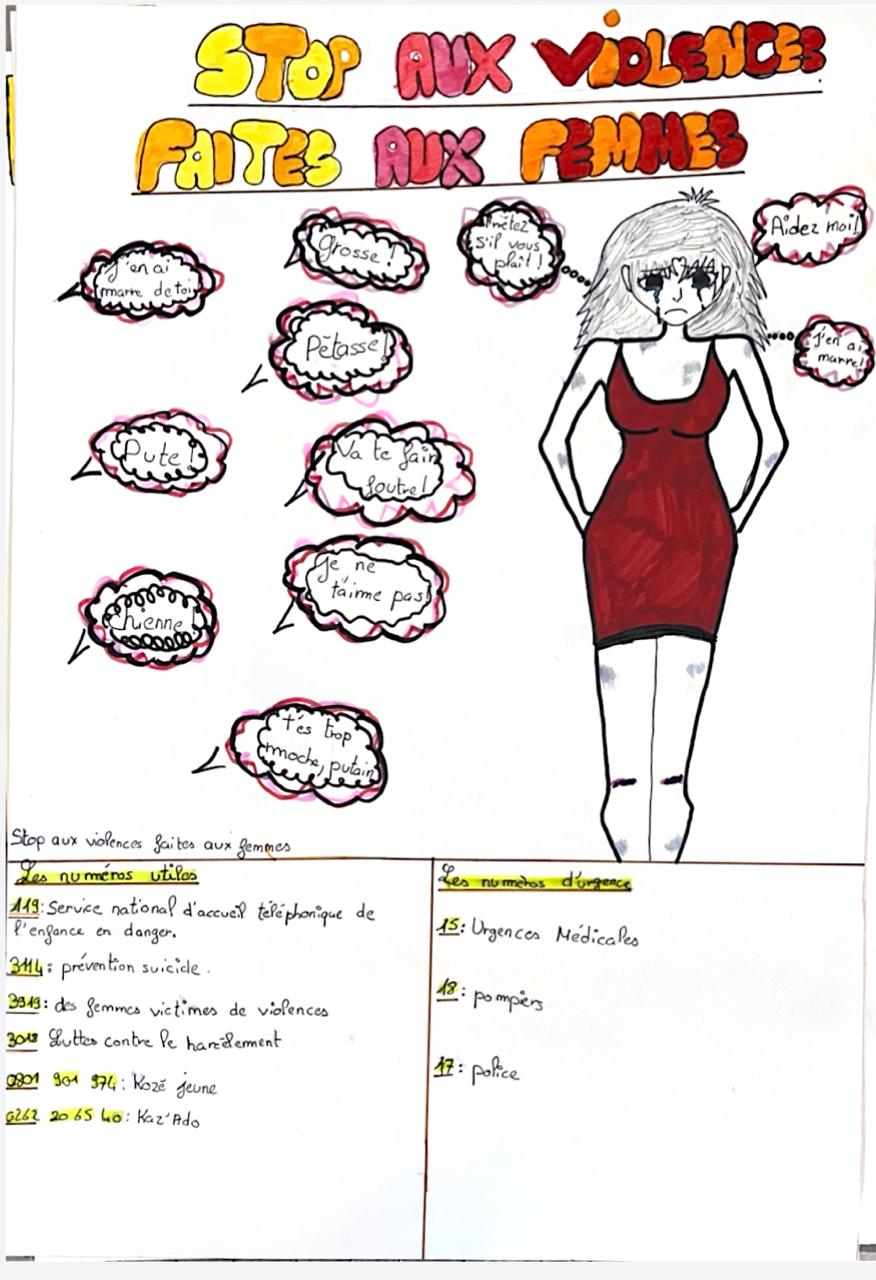 STOP AUX VIOLENCES
FAITES AUX FEMMES
J'en ai
marre de toi
Grosse !
Arrêtez
s'il vous
plaît !
Aidez moi!
Pétasse!
j'en ai
marre!
Pute !
Va te fair
foutre!
je ne
t'aime pas!
Chienne !
t'es trop
moche, putain
Stop aux violences faites aux femmes
Les numéros utiles
119: Service national d'accueil téléphonique de
l'enfance en danger.
3114: prévention suicide.
3919: des femmes victimes de violences
3018 Luttes contre le harcèlement
0801 901 974: Kozé jeune
0262 20 65 40: Kaz'Ado
Les numéros d'urgence
15: Urgences Médicales
18: pompiers
17: police